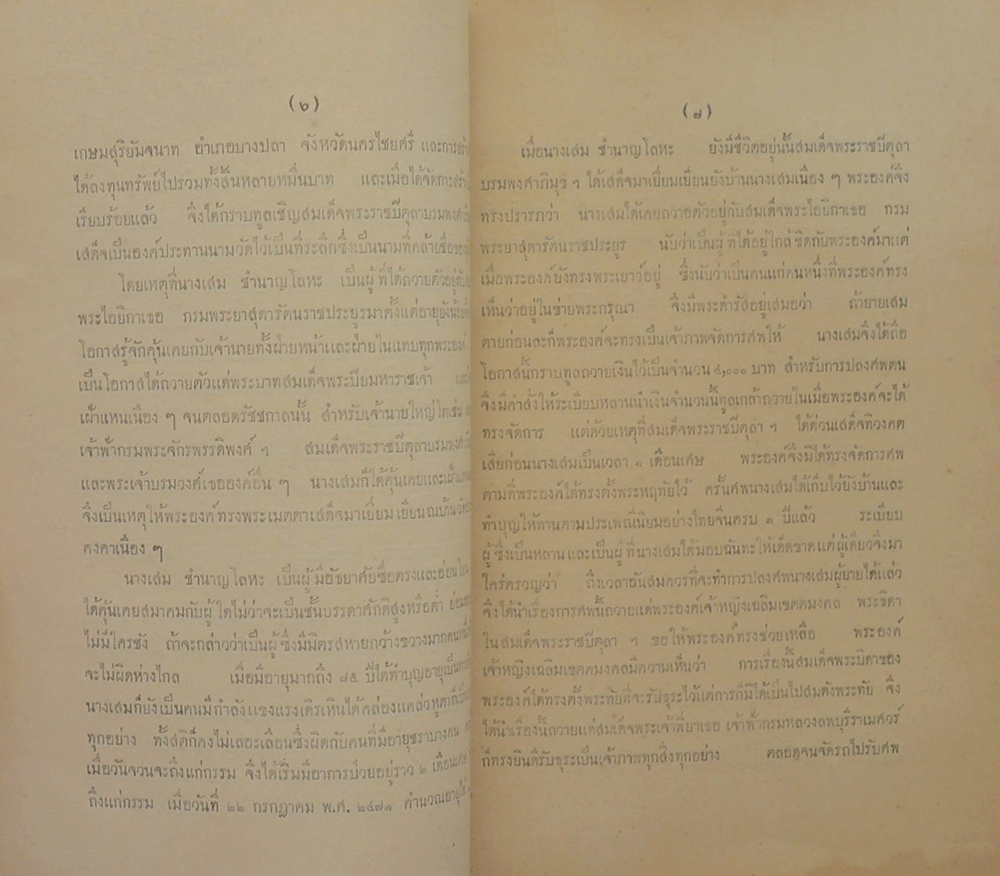 (๖)
เกษมสุริยัมจนาท อำเภอบางปลา จังหวัดนครไชยศรี และการสร้าง
ได้ลงทุนทรัพย์ไปรวมทั้งสิ้นหลายหมื่นบาท และเมื่อได้จัดการสร้าง
เรียบร้อยแล้ว จึงได้กราบทูลเชิญสมเด็จพระราชปีตุลาบรมพงศาภิ
เสด็จเป็นองค์ประทานนามวัดไว้เป็นที่ระลึกซึ่งเป็นนามที่คล้ายชื่อของ
โดยเหตุที่นางเสม ชำนาญโลหะ เป็นผู้ที่ได้ถวายตัวอยู่กับ
พระไอยิกาเธอ กรมพระยาสุดารัตนราชประยูรมาตั้งแต่อายุยังน้อย
โอกาสรู้จักคุ้นเคยกับเจ้านายทั้งฝ่ายหน้าและฝ่ายในแทบทุกพระองค์
เป็นโอกาสได้ถวายตัวแด่พระบาทสมเด็จพระปิยมหาราชเจ้า
เฝ้าแหนเนือง ๆ จนตลอดรัชชกาลนั้น สำหรับเจ้านายใหญ่โตเช่น
เจ้าฟ้ากรมพระจักรพรรดิพงศ์ ฯ สมเด็จพระราชปีตุลาบรมพงศาภิ
และพระเจ้าบรมวงศ์เธอองค์อื่น ๆ นางเสมก็ได้คุ้นเคยและเฝ้า
จึงเป็นเหตุให้พระองค์ทรงพระเมตตาเสด็จมาเยี่ยมเยียนณบ้าน
คงคาเนือง ๆ
นางเสม ชำนาญโลหะ เป็นผู้มีอัชยาศัยซื่อตรงและอ่อนโยน
ได้คุ้นเคยสมาคมกับผู้ใดไม่ว่าจะเป็นชั้นบรรดาศักดิ์สูงหรือต่ำ ย่อม
ไม่มีใครชัง ถ้าจะกล่าวว่าเป็นผู้ซึ่งมีมิตรสหายกว้างขวางมากคนหนึ่ง
จะไม่ผิดห่างไกล เมื่อมีอายุมากถึง ๘๕ ปีได้ทำบุญอายุเป็นการ
นางเสมก็ยังเป็นคนมีกำลังแขงแรงเดิรเหินได้คล่องแคล่วหูตาก็
ทุกอย่าง ทั้งสติก็คงไม่เลอะเลือนซึ่งผิดกับคนที่มีอายุชราบางคน
เมื่อวันจวนจะถึงแก่กรรม จึงได้เริ่มมีอาการป่วยอยู่ราว ๒ เดือนเศษ
ถึงแก่กรรม เมื่อวันที่ ๒๒ กรกฎาคม พ.ศ. ๒๔๗๑ คำนวณอายุได้
(๗)
เมื่อนางเสม ชำนาญโลหะ ยังมีชีวิตอยู่นั้นสมเด็จพระราชปีตุลา
บรมพงศาภิมุข ฯ ได้เสด็จมาเยี่ยมเยียนยังบ้านนางเสมเนือง ๆ พระองค์จึง
ทรงปรารภว่า นางเสมได้เคยถวายตัวอยู่กับสมเด็จพระไอยิกาเธอ กรม
พระยาสุดารัตนราชประยูร นับว่าเป็นผู้ที่ได้อยู่ใกล้ชิดกับพระองค์มาแต่
เมื่อพระองค์ยังทรงพระเยาว์อยู่ ซึ่งนับว่าเป็นคนแก่คนหนึ่งที่พระองค์ทรง
เห็นว่าอยู่ในข่ายพระกรุณา จึงมีพระดำรัสอยู่เสมอว่า ถ้ายายเสม
ตายก่อนละก็พระองค์จะทรงเป็นเจ้าภาพจัดการศพให้ นางเสมจึงได้ถือ
โอกาสนี้กราบทูลถวายเงินไว้เป็นจำนวน ๔,๐๐๐ บาท สำหรับการปลงศพตน
จึงมีคำสั่งให้ระเบียบหลานนำเงินจำนวนนี้ทูลเกล้าถวายในเมื่อพระองค์จะได้
ทรงจัดการ แต่ด้วยเหตุที่สมเด็จพระราชปีตุลา ฯ ได้ด่วนเสด็จทิวงคต
เสียก่อนนางเสมเป็นเวลา ๑ เดือนเศษ พระองค์จึงมิได้ทรงจัดการศพ
ตามที่พระองค์ได้ทรงตั้งพระหฤทัยไว้ ครั้นศพนางเสมได้เก็บไว้ยังบ้านและ
ทำบุญให้ทานตามประเพณีนิยมอย่างไทยจนครบ ๓ ปีแล้ว ระเบียบ
ผู้ซึ่งเป็นหลานและเป็นผู้ที่นางเสมได้มอบฉันทะให้เด็ดขาดแต่ผู้เดียวจึงมา
ใคร่ครวญว่า ถึงเวลาอันสมควรที่จะทำการปลงศพนางเสมผู้ยายได้แล้ว
จึงได้นำเรื่องการศพนี้ถวายแด่พระองค์เจ้าหญิงเฉลิมเขตตมงคล พระธิดา
ในสมเด็จพระราชปีตุลา ฯ ขอให้พระองค์ทรงช่วยเหลือ พระองค์
เจ้าหญิงเฉลิมเขตตมงคลมีความเห็นว่า การเรื่องนี้สมเด็จพระบิดาของ
พระองค์ได้ทรงตั้งพระทัยที่จะรับธุระไว้แต่การก็มิได้เป็นไปสมดังพระทัย จึง
ได้นำเรื่องนี้ถวายแด่สมเด็จพระเจ้าพี่ยาเธอ เจ้าฟ้ากรมหลวงลพบุรีราเมศวร์
ก็ทรงยินดีรับธุระเป็นเจ้าภาพทุกสิ่งทุกอย่าง ตลอดจนจัดรถไปรับศพ